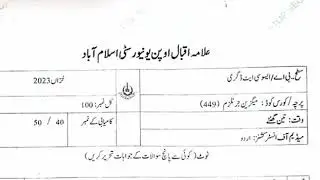 علامہ اقبال اوپن یونیورسٹی اسلام آباد
سطح۔ بی اے/ ایسوسی ایٹ ڈگری
خزاں 2023
پرچہ/ کورس کوڈ: میگزین جرنلزم (449)
کل نمبر: 100
وقت: تین گھنٹے
کامیابی کے نمبر 40 / 50
میڈیم آف انسٹرکشنز: اردو
نوٹ (کوئی سے پانچ سوالات کے جوابات تحریر کریں)